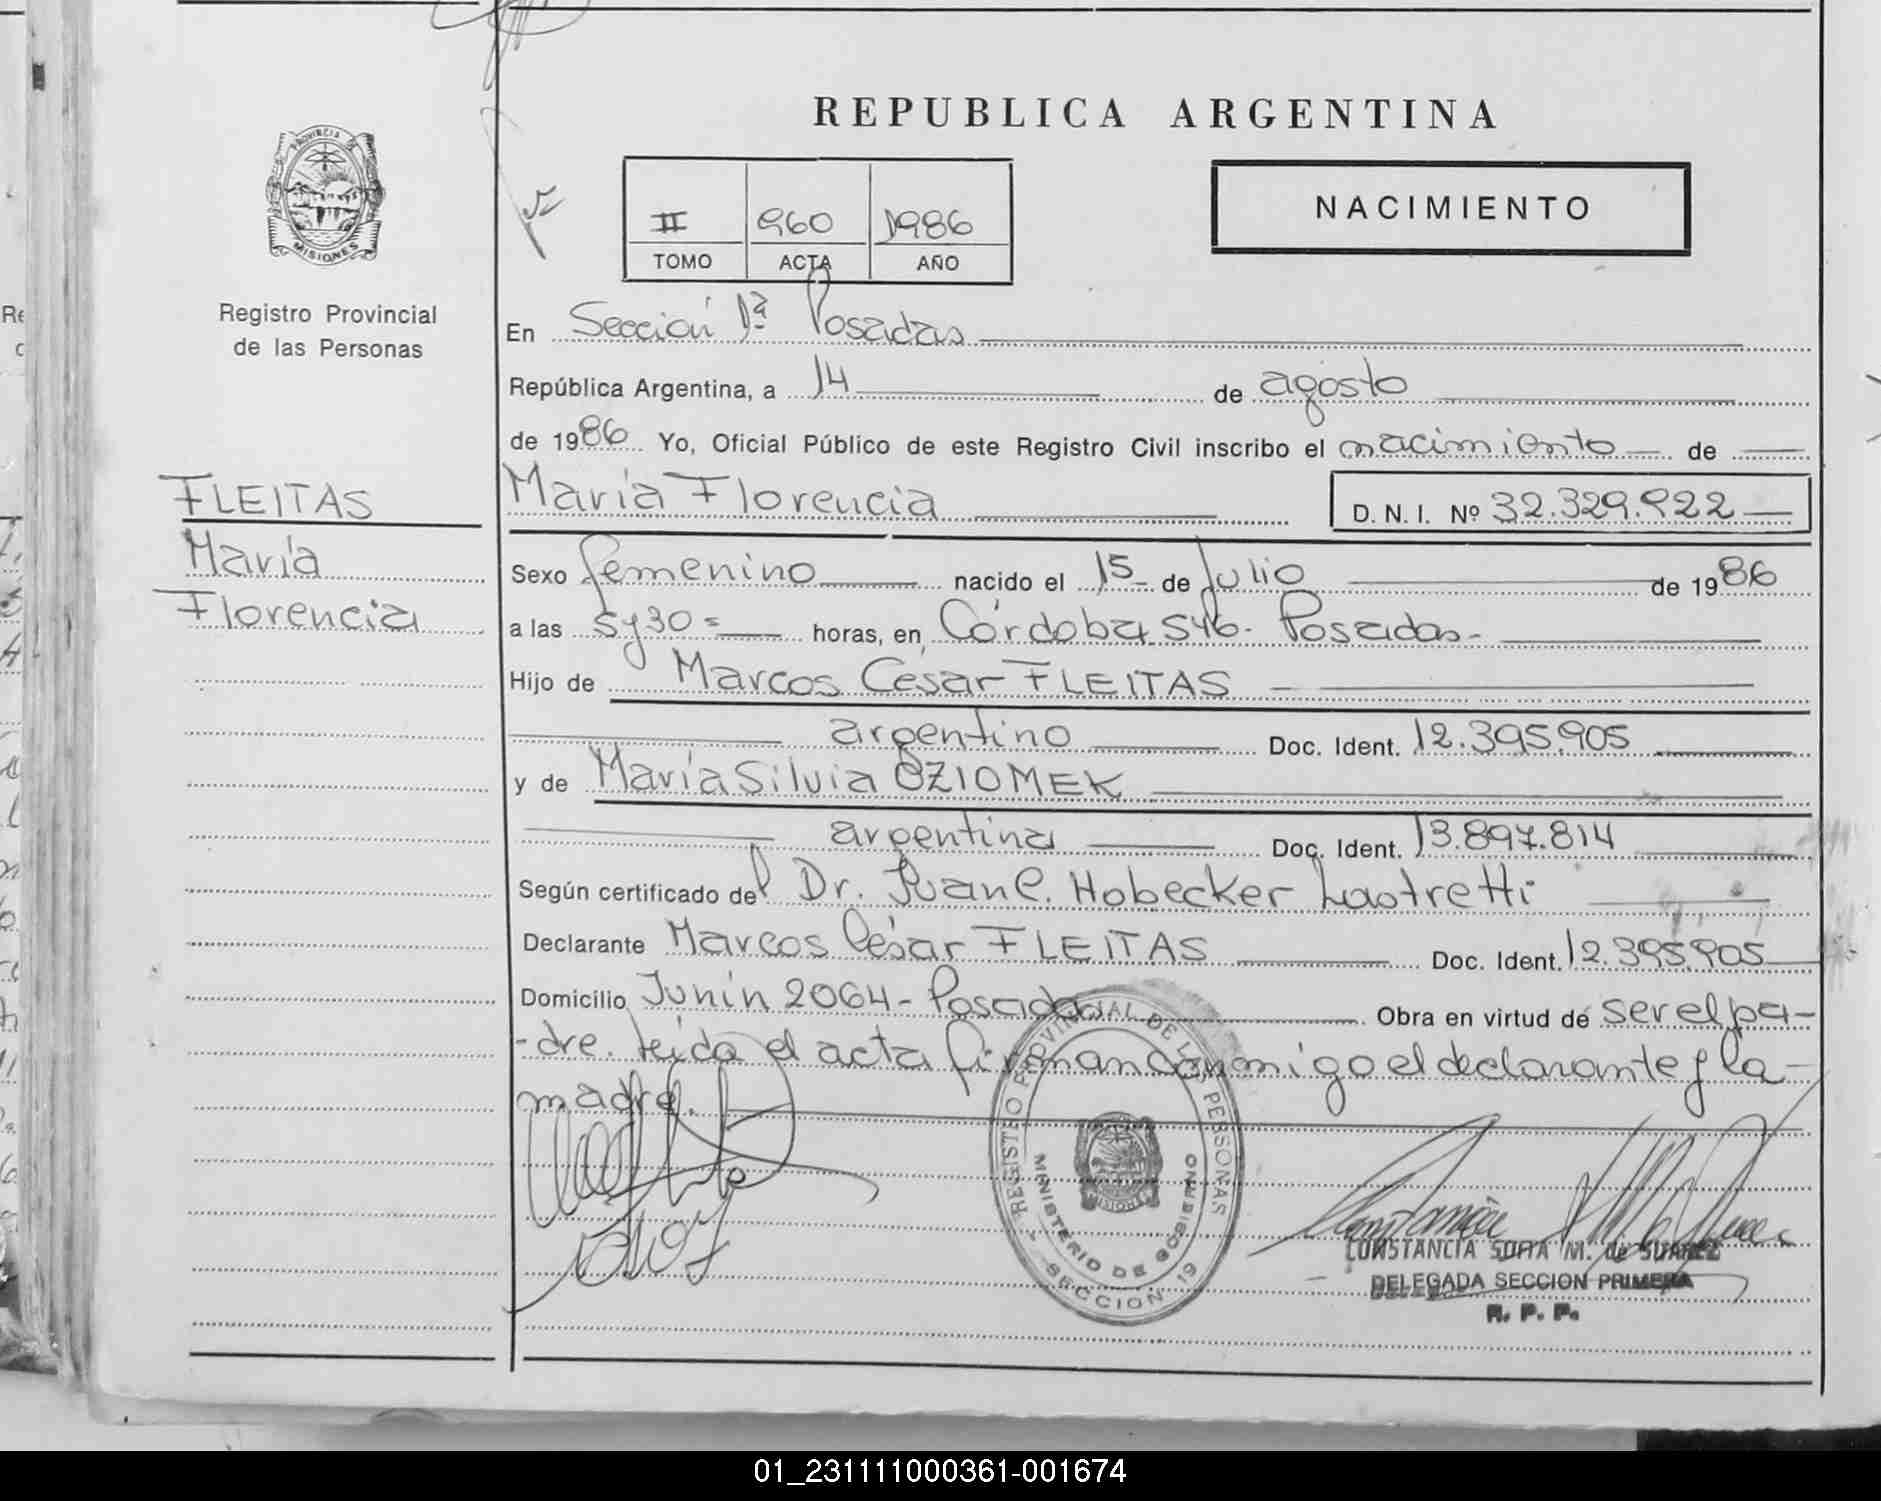 REPUBLICA ARGENTINA
PROVINCIA DE MISIONES
Registro Provincial
de las Personas
II 960 1986
TOMO ACTA AÑO
NACIMIENTO
En Sección 1ª Posadas
República Argentina, a 14 de agosto
de 1986 Yo, Oficial Público de este Registro Civil inscribo el nacimiento de
FLEITAS
María
Florencia
María Florencia
D. N. I. Nº 32.329.922
Sexo femenino nacido el 15 de Julio de 1986
a las 5y30 horas, en Córdoba 546. Posadas-
Hijo de Marcos César FLEITAS
argentino Doc. Ident. 12.395.905
y de María Silvia OZIOMEK
argentina Doc. Ident. 13.897.814
Según certificado del Dr. Juan C. Hobecker Lastretti
Declarante Marcos César FLEITAS Doc. Ident. 12.395.905
Domicilio Junín 2064- Posadas Obra en virtud de ser el pa-
-dre. Leída el acta firman conmigo el declarante y la
madre.
REGISTRO PROVINCIAL DE LAS PERSONAS
MINISTERIO DE GOBIERNO
SECCION 1ª
CONSTANCIA SOFIA M. de SUAREZ
DELEGADA SECCION PRIMERA
R. P. P.
01_231111000361-001674